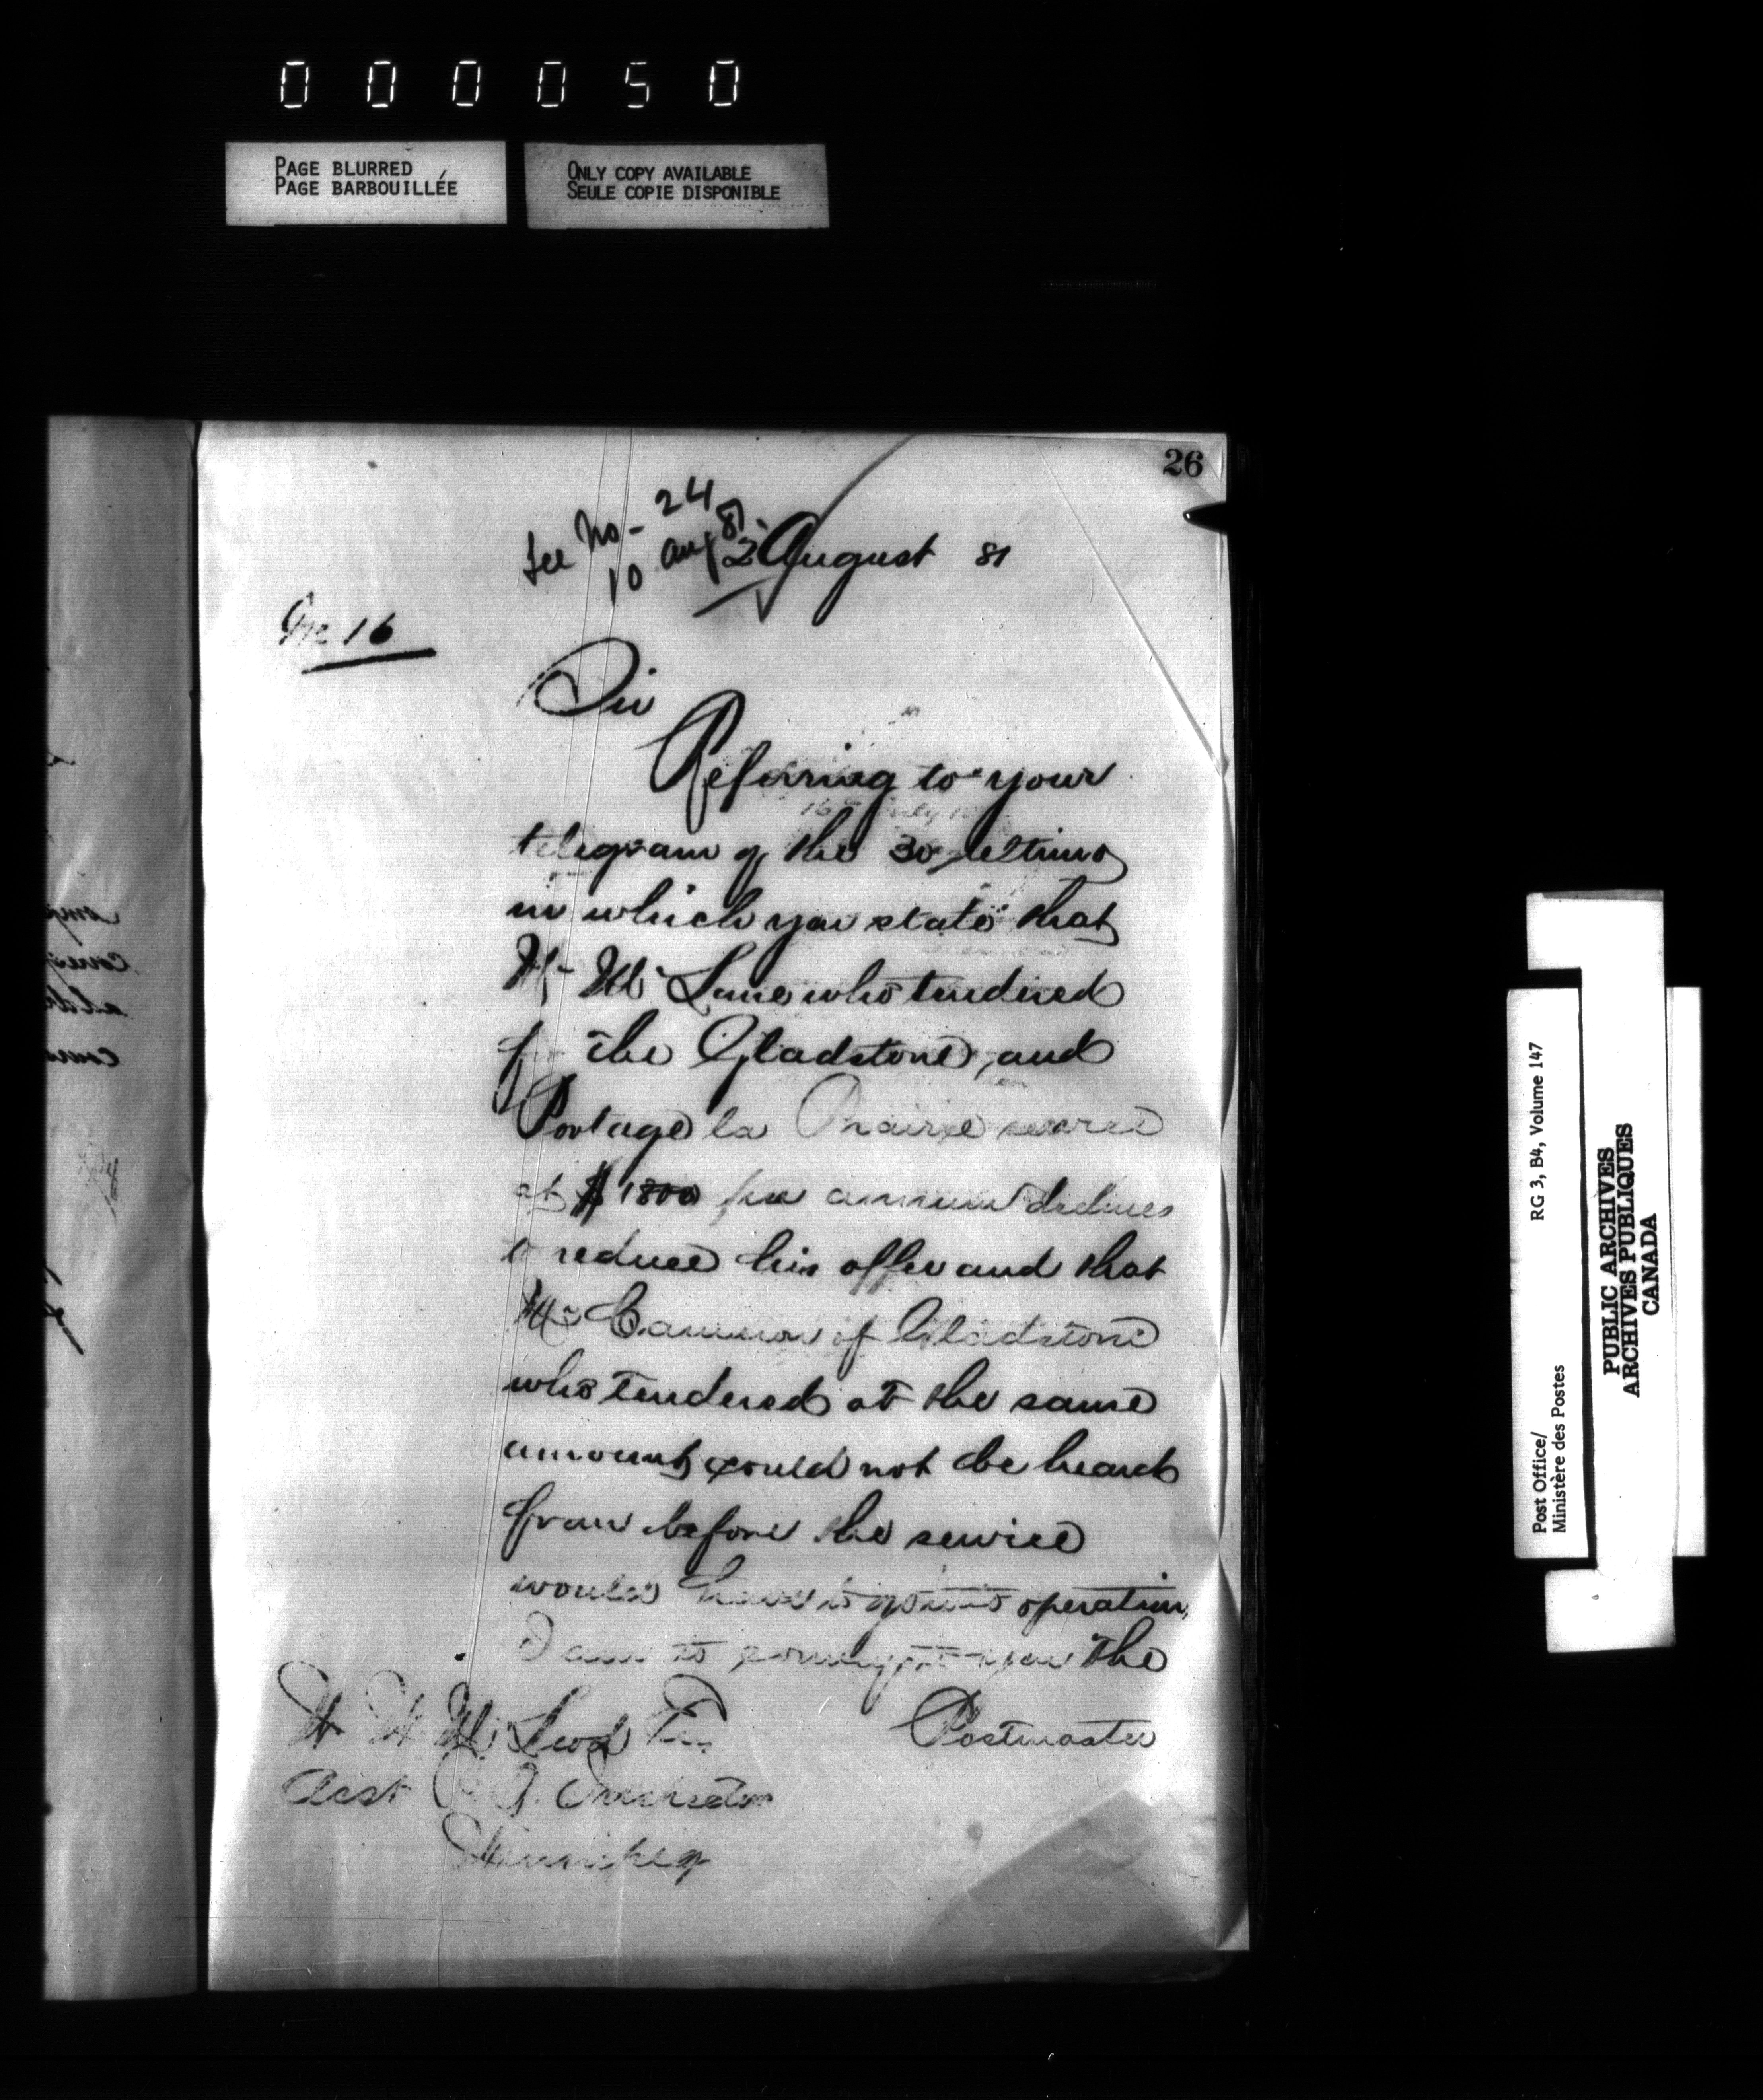 000050
PAGE BLURRED
PAGE BARBOUILLÉE
ONLY COPY AVAILABLE
SEULE COPIE DISPONIBLE
26
See No - 24
10 Aug 81.
2 August 81
No 16
Sir
Referring to your
telegram of the 30 ultimo
in which you state that
Mr McLane who tendered
for the Gladstone, and
Portage la Prairie
at $1800 per annum declines
to reduce his offer and that
Mr Cameron of Gladstone
who tendered at the same
amount, could not be heard
from before the service
would have to go into operation,
I am to you the
Postmaster
W. W. McLeod
Asst P.O. Inspector
Winnipeg
Post Office/
Ministère des Postes
RG 3, B4, Volume 147
PUBLIC ARCHIVES
ARCHIVES PUBLIQUES
CANADA